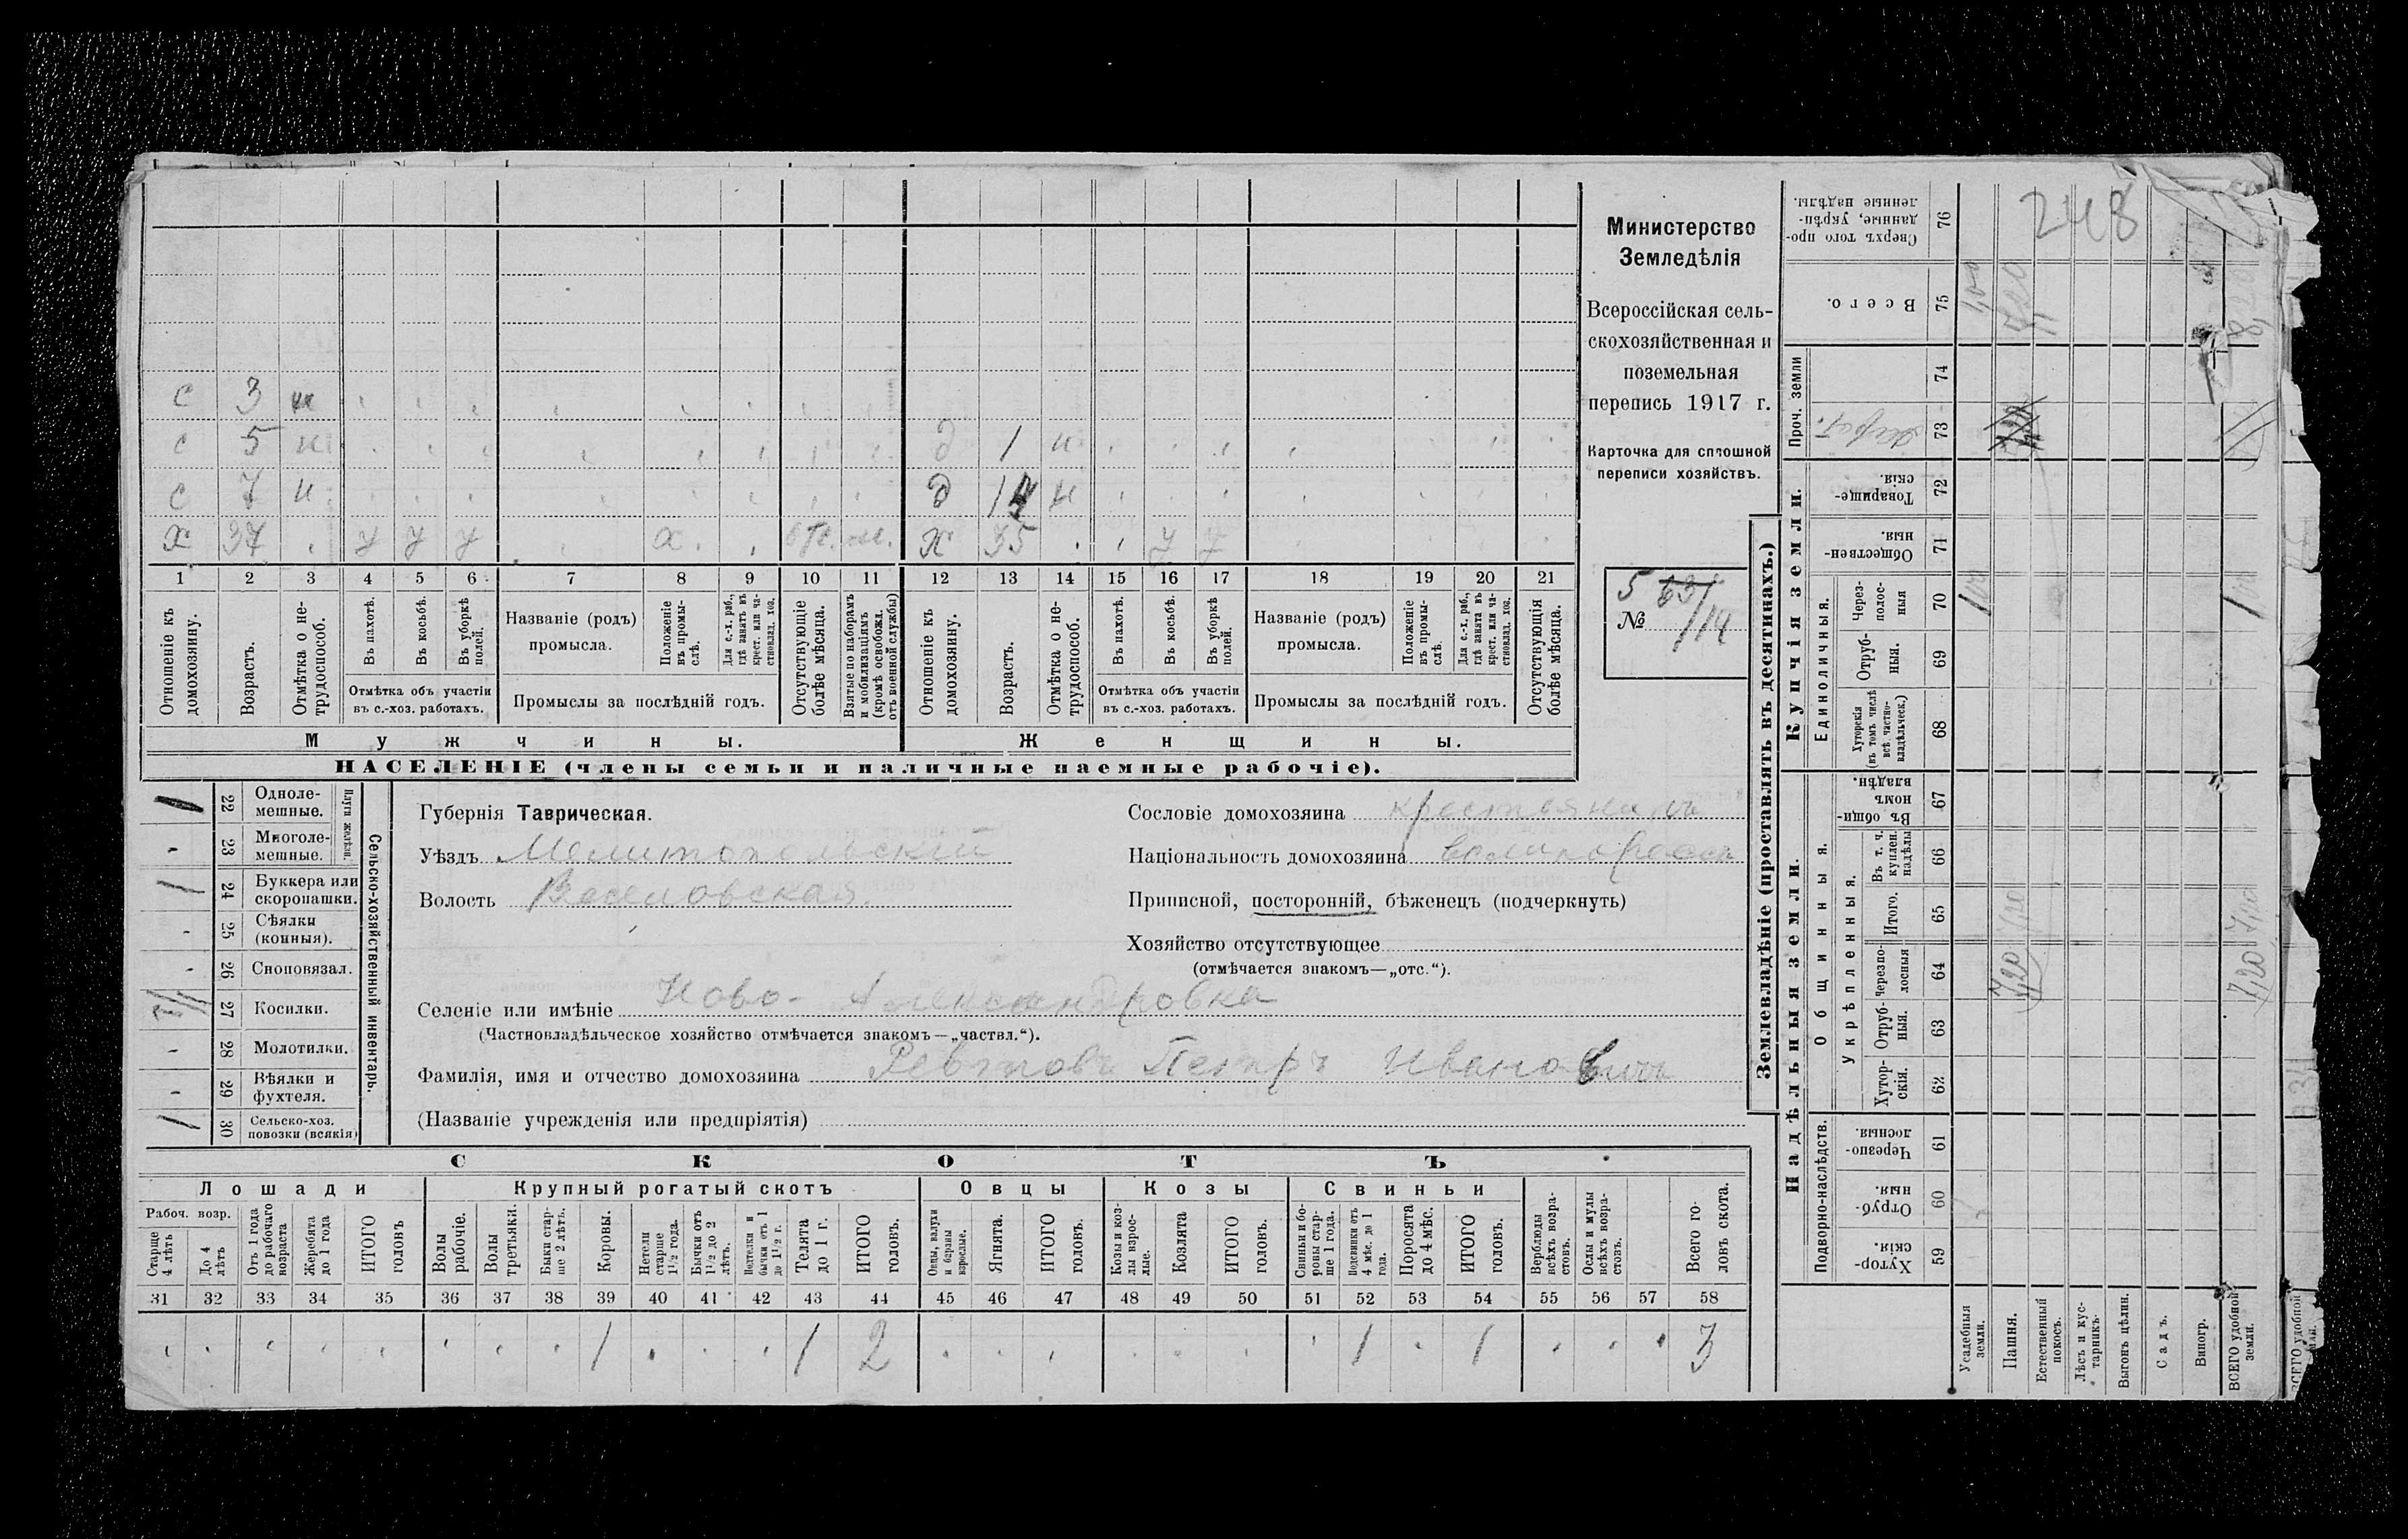 248
Министерство
Земледѣлія
Всероссійская сель-
скохозяйственная и
поземельная
перепись 1917 г.
Карточка для сплошной
переписи хозяйствъ.
5 631
№ 114
с 3 н
с 5 н д 1 н
с 7 н д 14 н
х 37 у у у х. отс. м. х 35 у у
1 2 3 4 5 6 7 8 9 10 11 12 13 14 15 16 17 18 19 20 21
Отношеніе къ домохозяину.
Возрастъ.
Отмѣтка о не-трудоспособ.
Въ пахотѣ.
Въ косьбѣ.
Въ уборкѣ полей.
Отмѣтка объ участіи
въ с.-хоз. работахъ.
Названіе (родъ)
промысла.
Положеніе въ промы-слѣ.
Для с.-х. раб., гдѣ занятъ въ крест. или ча-стновлад. хоз.
Промыслы за послѣдній годъ.
Отсутствующіе болѣе мѣсяца.
Взятые по наборамъ и мобилизаціямъ (кромѣ освобожд. отъ военной службы)
Отношеніе къ домохозяину.
Возрастъ.
Отмѣтка о не-трудоспособ.
Въ пахотѣ.
Въ косьбѣ.
Въ уборкѣ полей.
Отмѣтка объ участіи
въ с.-хоз. работахъ.
Названіе (родъ)
промысла.
Положеніе въ промы-слѣ.
Для с.-х. раб., гдѣ занята въ крест. или ча-стновлад. хоз.
Промыслы за послѣдній годъ.
Отсутствующія болѣе мѣсяца.
Мужчины. Женщины.
НАСЕЛЕНІЕ (члены семьи и наличные наемные рабочіе).
1 22 Одноле-мешные.
23 Многоле-мешные.
Плуги желѣзн.
1 24 Буккера или скоропашки.
25 Сѣялки (конныя).
26 Сноповязал.
27 Косилки.
28 Молотилки.
29 Вѣялки и фухтеля.
1 30 Сельско-хоз. повозки (всякія)
Сельско-хозяйственный инвентарь.
Губернія Таврическая.
Уѣздъ Мелитопольскій
Волость Веселовская
Сословіе домохозяина крестьянинъ
Національность домохозяина великороссъ
Приписной, посторонній, бѣженецъ (подчеркнуть)
Хозяйство отсутствующее
(отмѣчается знакомъ—„отс.“).
Селеніе или имѣніе Ново-Александровка
(Частновладѣльческое хозяйство отмѣчается знакомъ—„частвл.“).
Фамилія, имя и отчество домохозяина Ревтовъ Петръ Ивановичъ
(Названіе учрежденія или предпріятія)
СКОТЪ
Лошади Крупный рогатый скотъ Овцы Козы Свиньи
Рабоч. возр.
Старше 4 лѣтъ
До 4 лѣтъ
Отъ 1 года до рабочаго возраста
Жеребята до 1 года
ИТОГО головъ
Волы рабочіе.
Волы третьяки.
Быки стар-ше 2 лѣтъ.
Коровы.
Нетели старше 1½ года.
Бычки отъ 1½ до 2 лѣтъ.
Нетелки и бычки отъ 1 до 1½ г.
Телята до 1 г.
ИТОГО головъ.
Овцы, валухи и бараны взрослые.
Ягнята.
ИТОГО головъ.
Козы и коз-лы взрос-лые.
Козлята
ИТОГО головъ.
Свиньи и бо-ровы стар-ше 1 года.
Подсвинки отъ 4 мѣс. до 1 года.
Поросята до 4 мѣс.
ИТОГО головъ.
Верблюды всѣхъ возра-стовъ.
Ослы и мулы всѣхъ возра-стовъ.
Всего го-ловъ скота.
31 32 33 34 35 36 37 38 39 40 41 42 43 44 45 46 47 48 49 50 51 52 53 54 55 56 57 58
1 1 2 1 1 3
Землевладѣніе (проставлять въ десятинахъ.)
Надѣльныя земли. Купчія земли. Проч. земли
Подворно-наслѣдств.
Общинныя.
Укрѣпленныя.
Единоличныя.
Хутор-скія. 59
Отруб-ныя. 60
Черезпо-лосныя. 61
Хутор-скія. 62
Отруб-ныя. 63
Черезпо-лосныя 64
Итого. 65
Въ т. ч. куплен. надѣлы 66
Въ общин-номъ владѣн. 67
Хуторскія (въ томъ числѣ всѣ частно-владѣльческ.) 68
Отруб-ныя. 69
Через-полос-ныя 70
Обществен-ныя. 71
Товарище-скія. 72
73
74
Всего. 75
Сверхъ того про-данные, укрѣп-ленные надѣлы. 76
Усадебныя земли.
Пашня. 7,20
Естественный покосъ.
Лѣсъ и кус-тарникъ.
Выгонъ цѣлин.
Садъ.
Виногр.
ВСЕГО удобной земли. 7,20 8,20